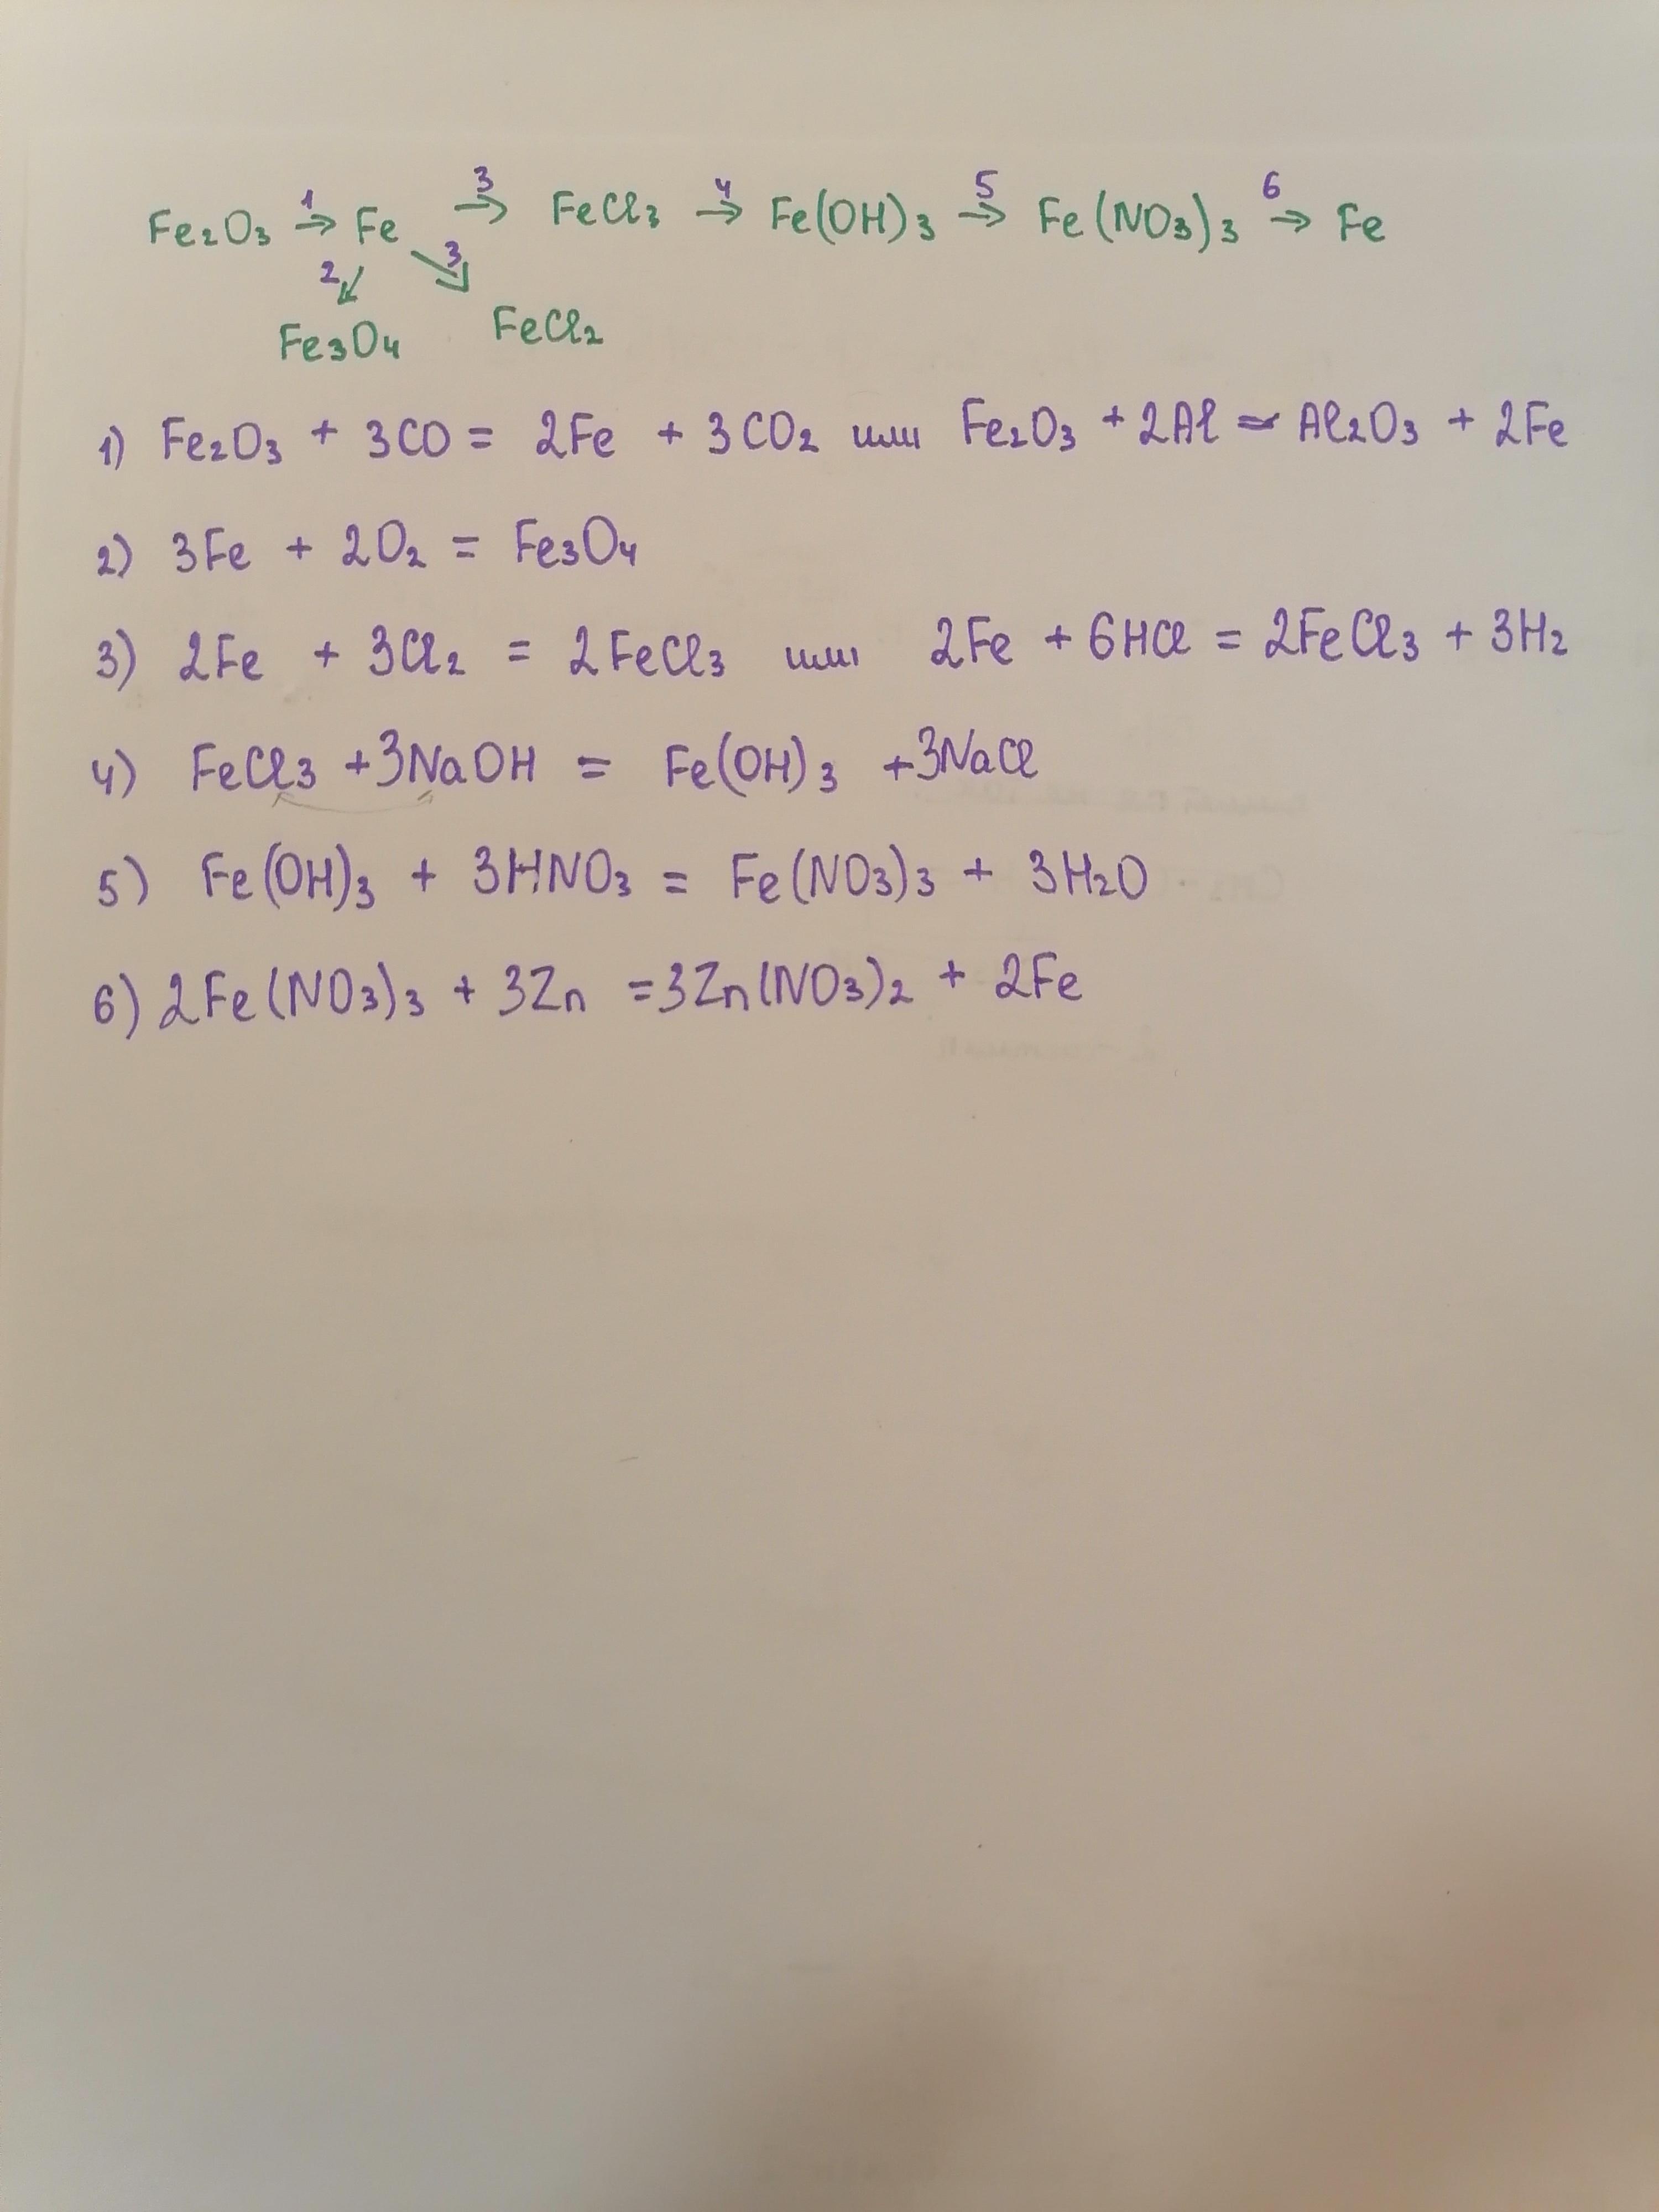 1 3 4 5 6
Fe2O3 → Fe → FeCl3 → Fe(OH)3 → Fe(NO3)3 → Fe
2 3
Fe3O4 FeCl2
1) Fe2O3 + 3CO = 2Fe + 3CO2 или Fe2O3 + 2Al = Al2O3 + 2Fe
2) 3Fe + 2O2 = Fe3O4
3) 2Fe + 3Cl2 = 2FeCl3 или 2Fe + 6HCl = 2FeCl3 + 3H2
4) FeCl3 +3NaOH = Fe(OH)3 +3NaCl
5) Fe(OH)3 + 3HNO3 = Fe(NO3)3 + 3H2O
6) 2Fe(NO3)3 + 3Zn =3Zn(NO3)2 + 2Fe